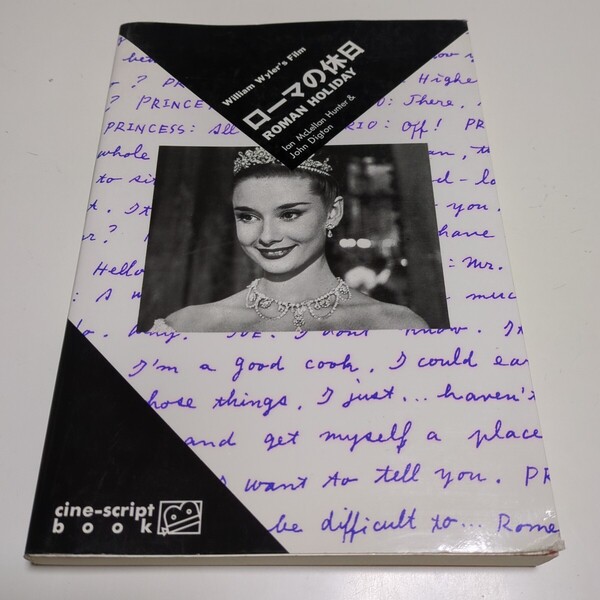 William Wyler's Film
ローマの休日
ROMAN HOLIDAY
Ian McLellan Hunter &
John Digton
Highe
? PRINCE : There,
PRINCESS: All RIO: Off! PR
whole an, th
to si d-lo
t. It you.
r? have
Hello : Mr.
: I w muc
know. It
I'm a good cook, I could ear
hose things, I just... haven't
and get myself a place
want to tell you. PR
be difficult to... Rome
cine-script
book